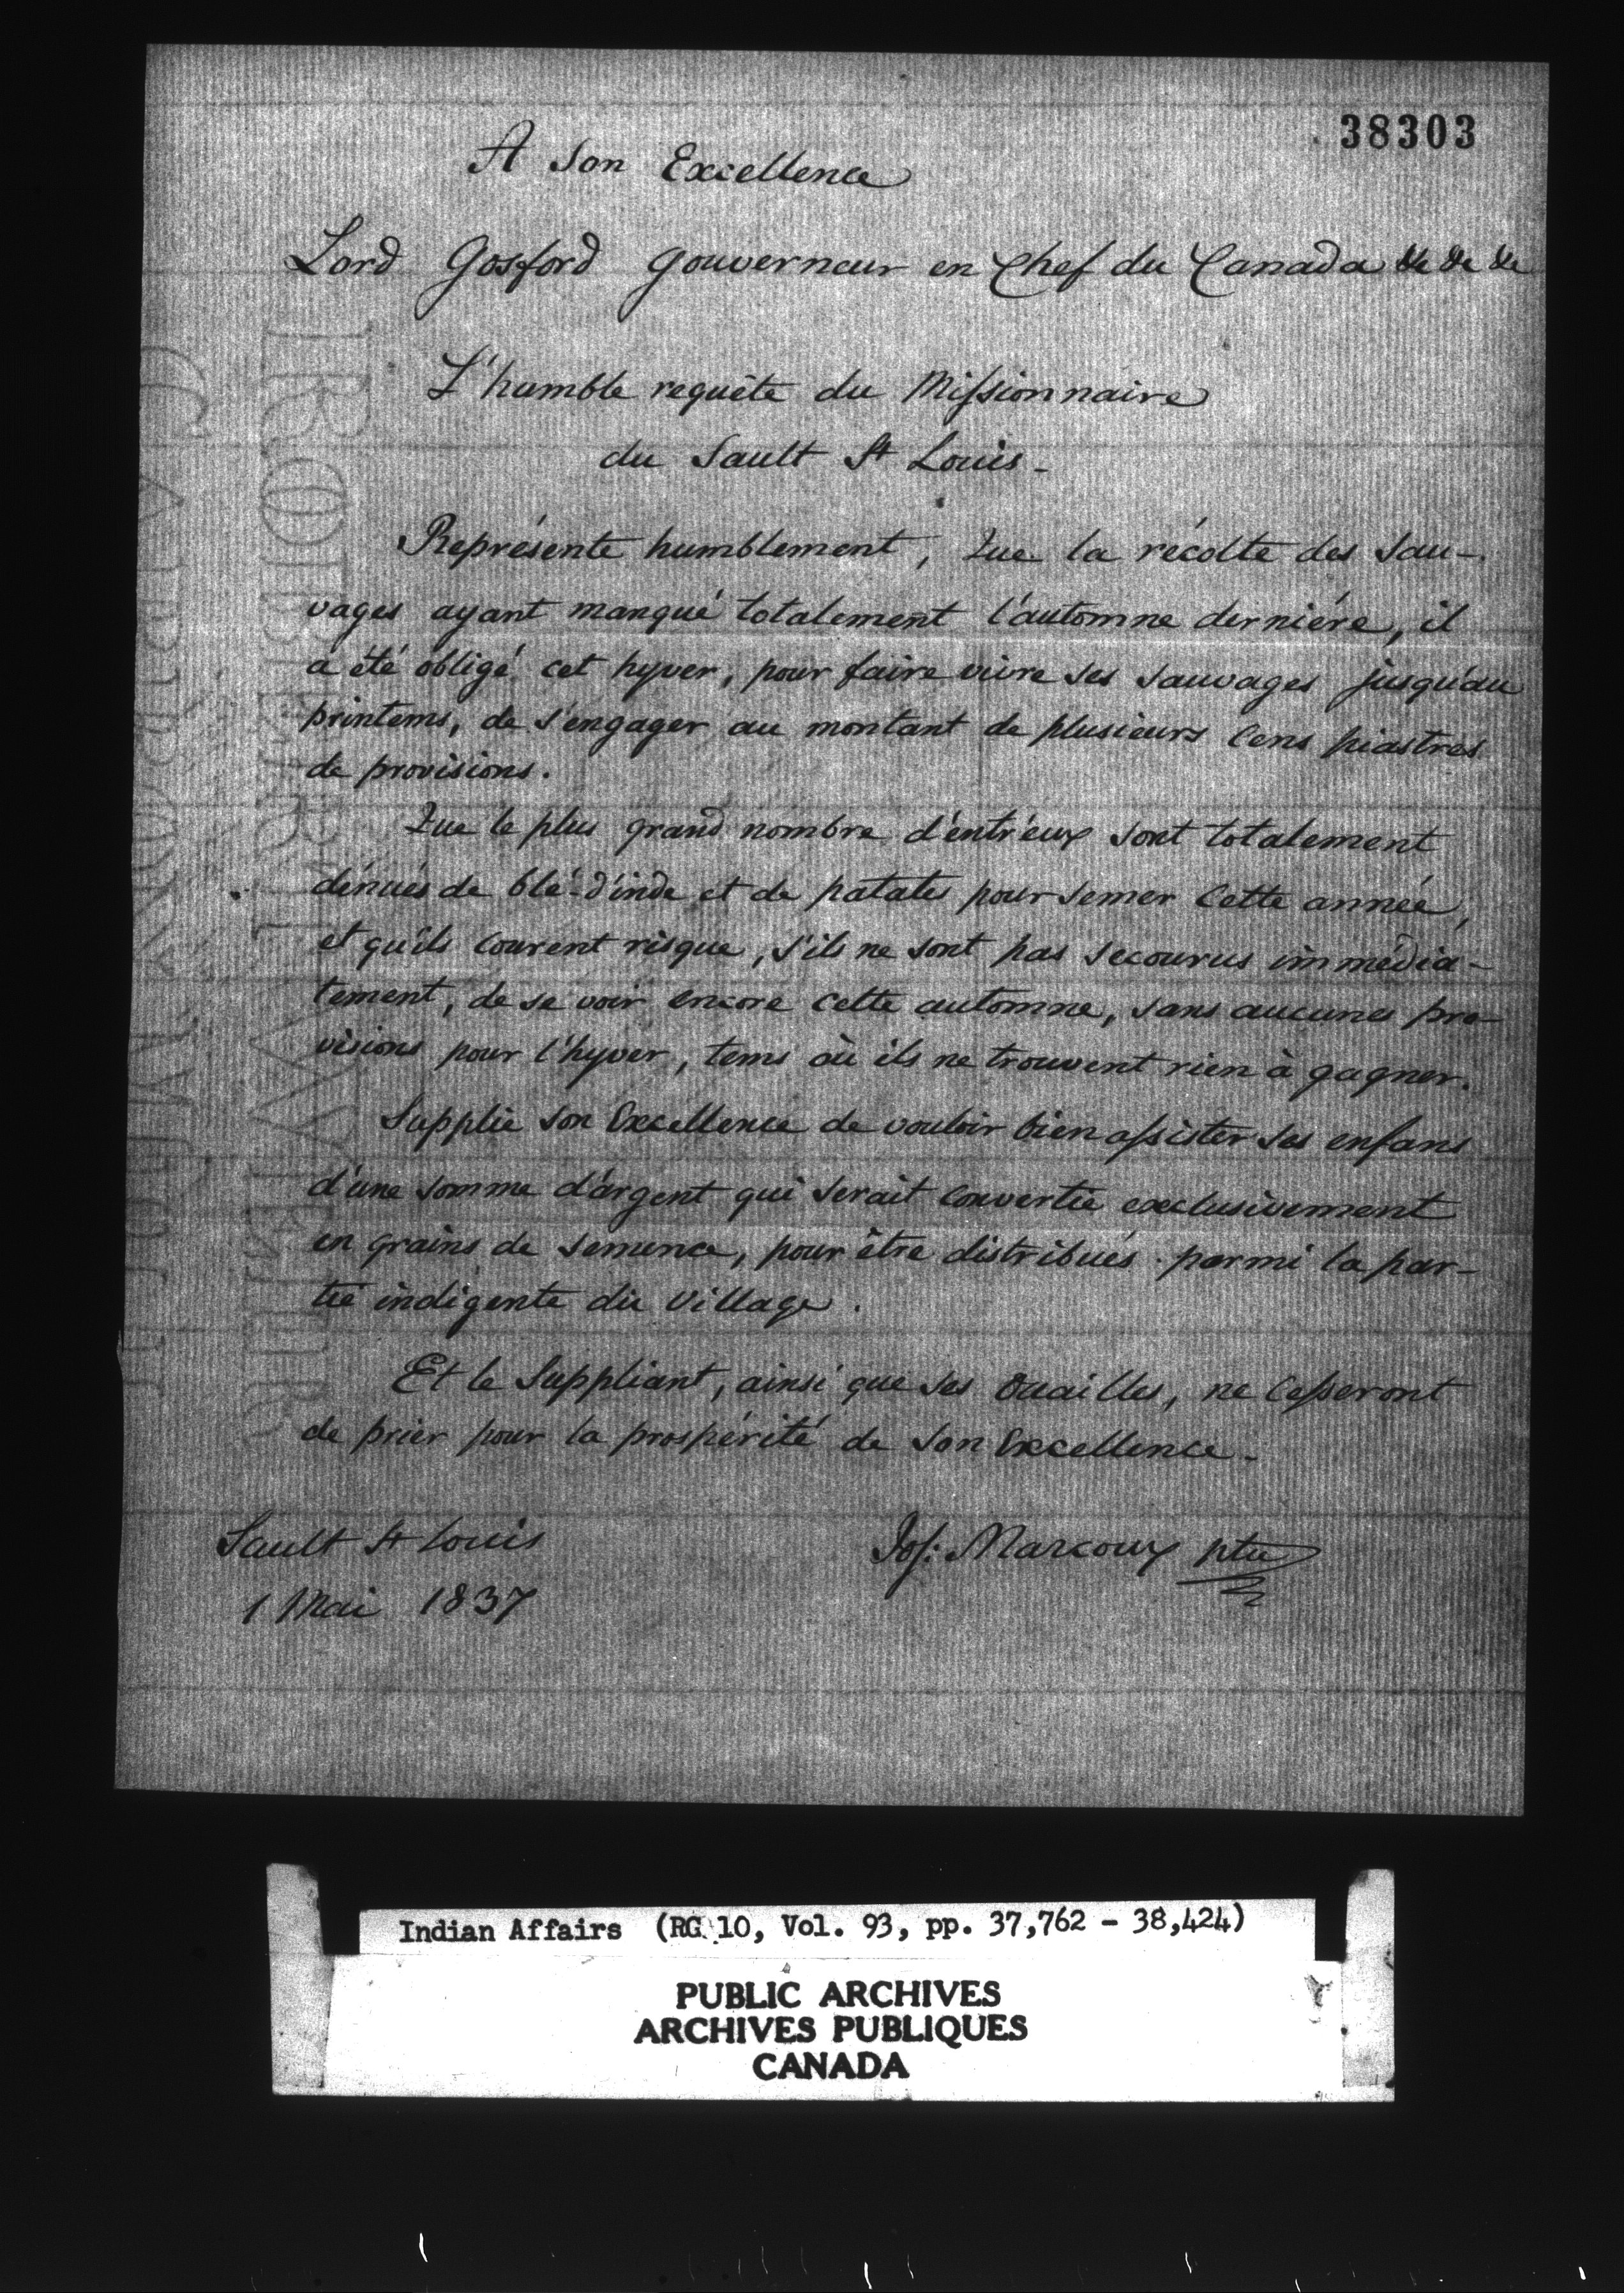 38303
A Son Excellence
Lord Gosford Gouverneur en Chef du Canada &c &c &c
L'humble requête du Missionnaire
du Sault St Louis -
Représente humblement, Que la récolte des Sau-
vages ayant manqué totalement l'automne derniére, il
a été obligé cet hyver, pour faire vivre ses Sauvages jusqu'au
printems, de s'engager au montant de plusieurs Cens piastres
de provisions.
Que le plus grand nombre d'entr'eux sont totalement
dénués de blé-d'inde et de patates pour semer cette année,
et qu'ils courent risque, s'ils ne sont pas secourus immédia-
tement, de se voir encore cette automne, sans aucunes pro-
visions pour l'hyver, tems où ils ne trouvent rien à gagner.
Supplie Son Excellence de vouloir bien assister ses enfans
d'une somme d'argent qui serait convertie exclusivement
en grains de semence, pour être distribués parmi la par-
tie indigente du Village.
Et le Suppliant, ainsi que ses Ouailles, ne cesseront
de prier pour la prospérité de Son Excellence -
Sault St Louis
1 Mai 1837
Jos: Marcoux ptre
Indian Affairs (RG 10, Vol. 93, pp. 37,762 - 38,424)
PUBLIC ARCHIVES
ARCHIVES PUBLIQUES
CANADA